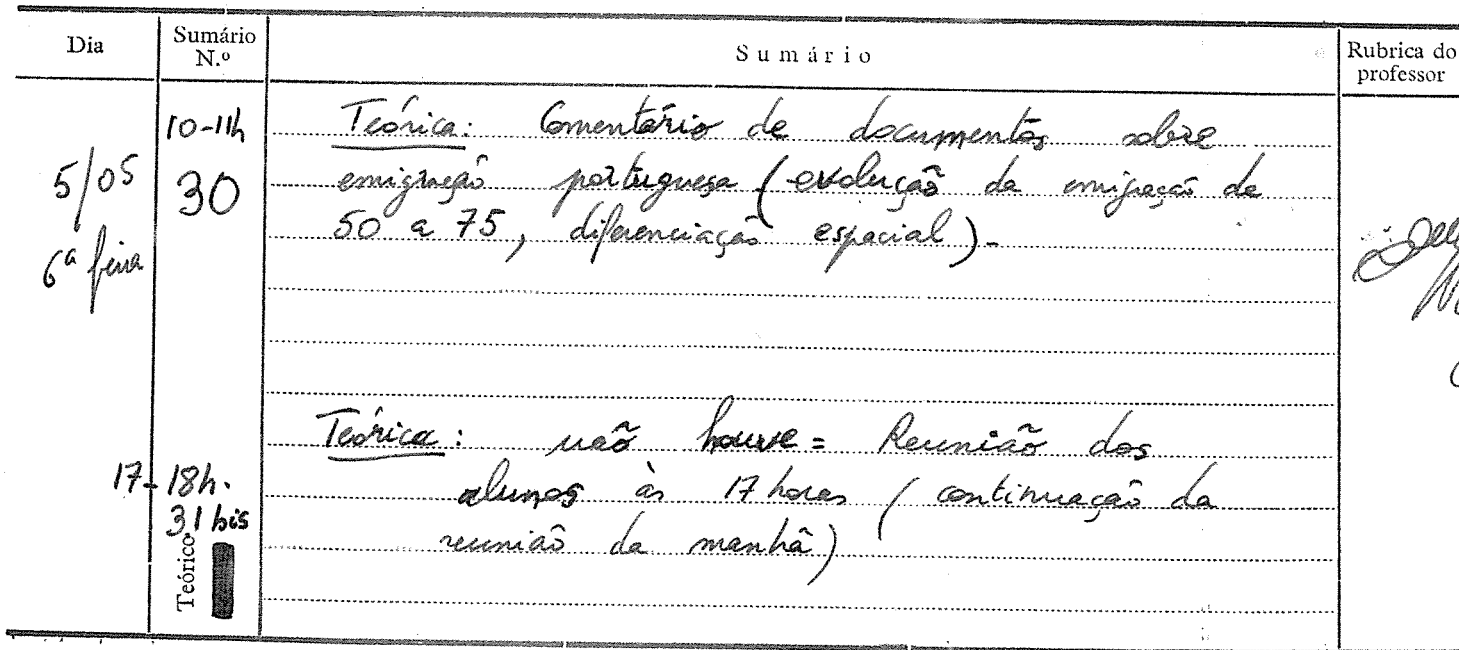 Dia
Sumário N.º
Sumário
Rubrica do professor
10-11h
5/05
6ª feira
30
Teórica: Comentário de documentos sobre
emigração portuguesa (evolução da emigração de
50 a 75, diferenciação espacial).
17-18h.
31 bis
Teórico
Teórica: não houve = Reunião dos
alunos às 17 horas (continuação da
reunião da manhã)